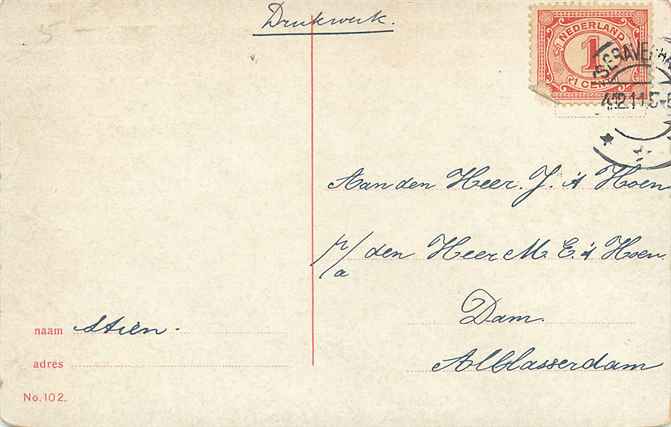 Drukwerk.
NEDERLAND
1
1 CENT
'SGRAVENHA
4.12.11.5-6
Aan den Heer. J. 't Hoen
p/a den Heer M. E. 't Hoen.
Dam.
Alblasserdam
naam Stien.
adres
No. 102.